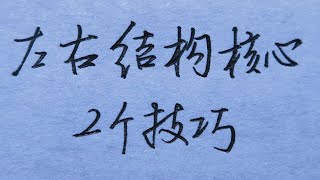 左右结构核心
2个技巧